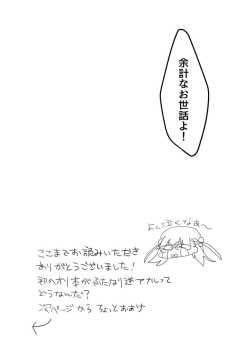 余計なお世話よ！
ここまでお読みいただき
ありがとうございました！
初のオリ本がふたなり逆アナルって
どうなんだ？
次ページから ちょっとおまけ